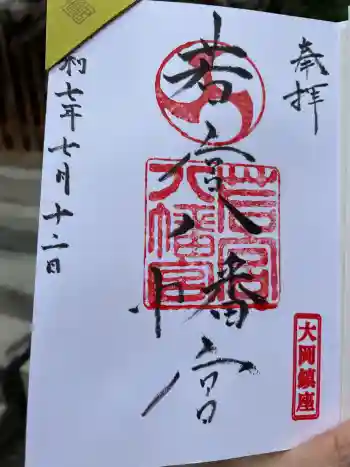 奉拝
若宮八幡宮
若宮
八幡宮
大岡鎮座
和七年七月十二日